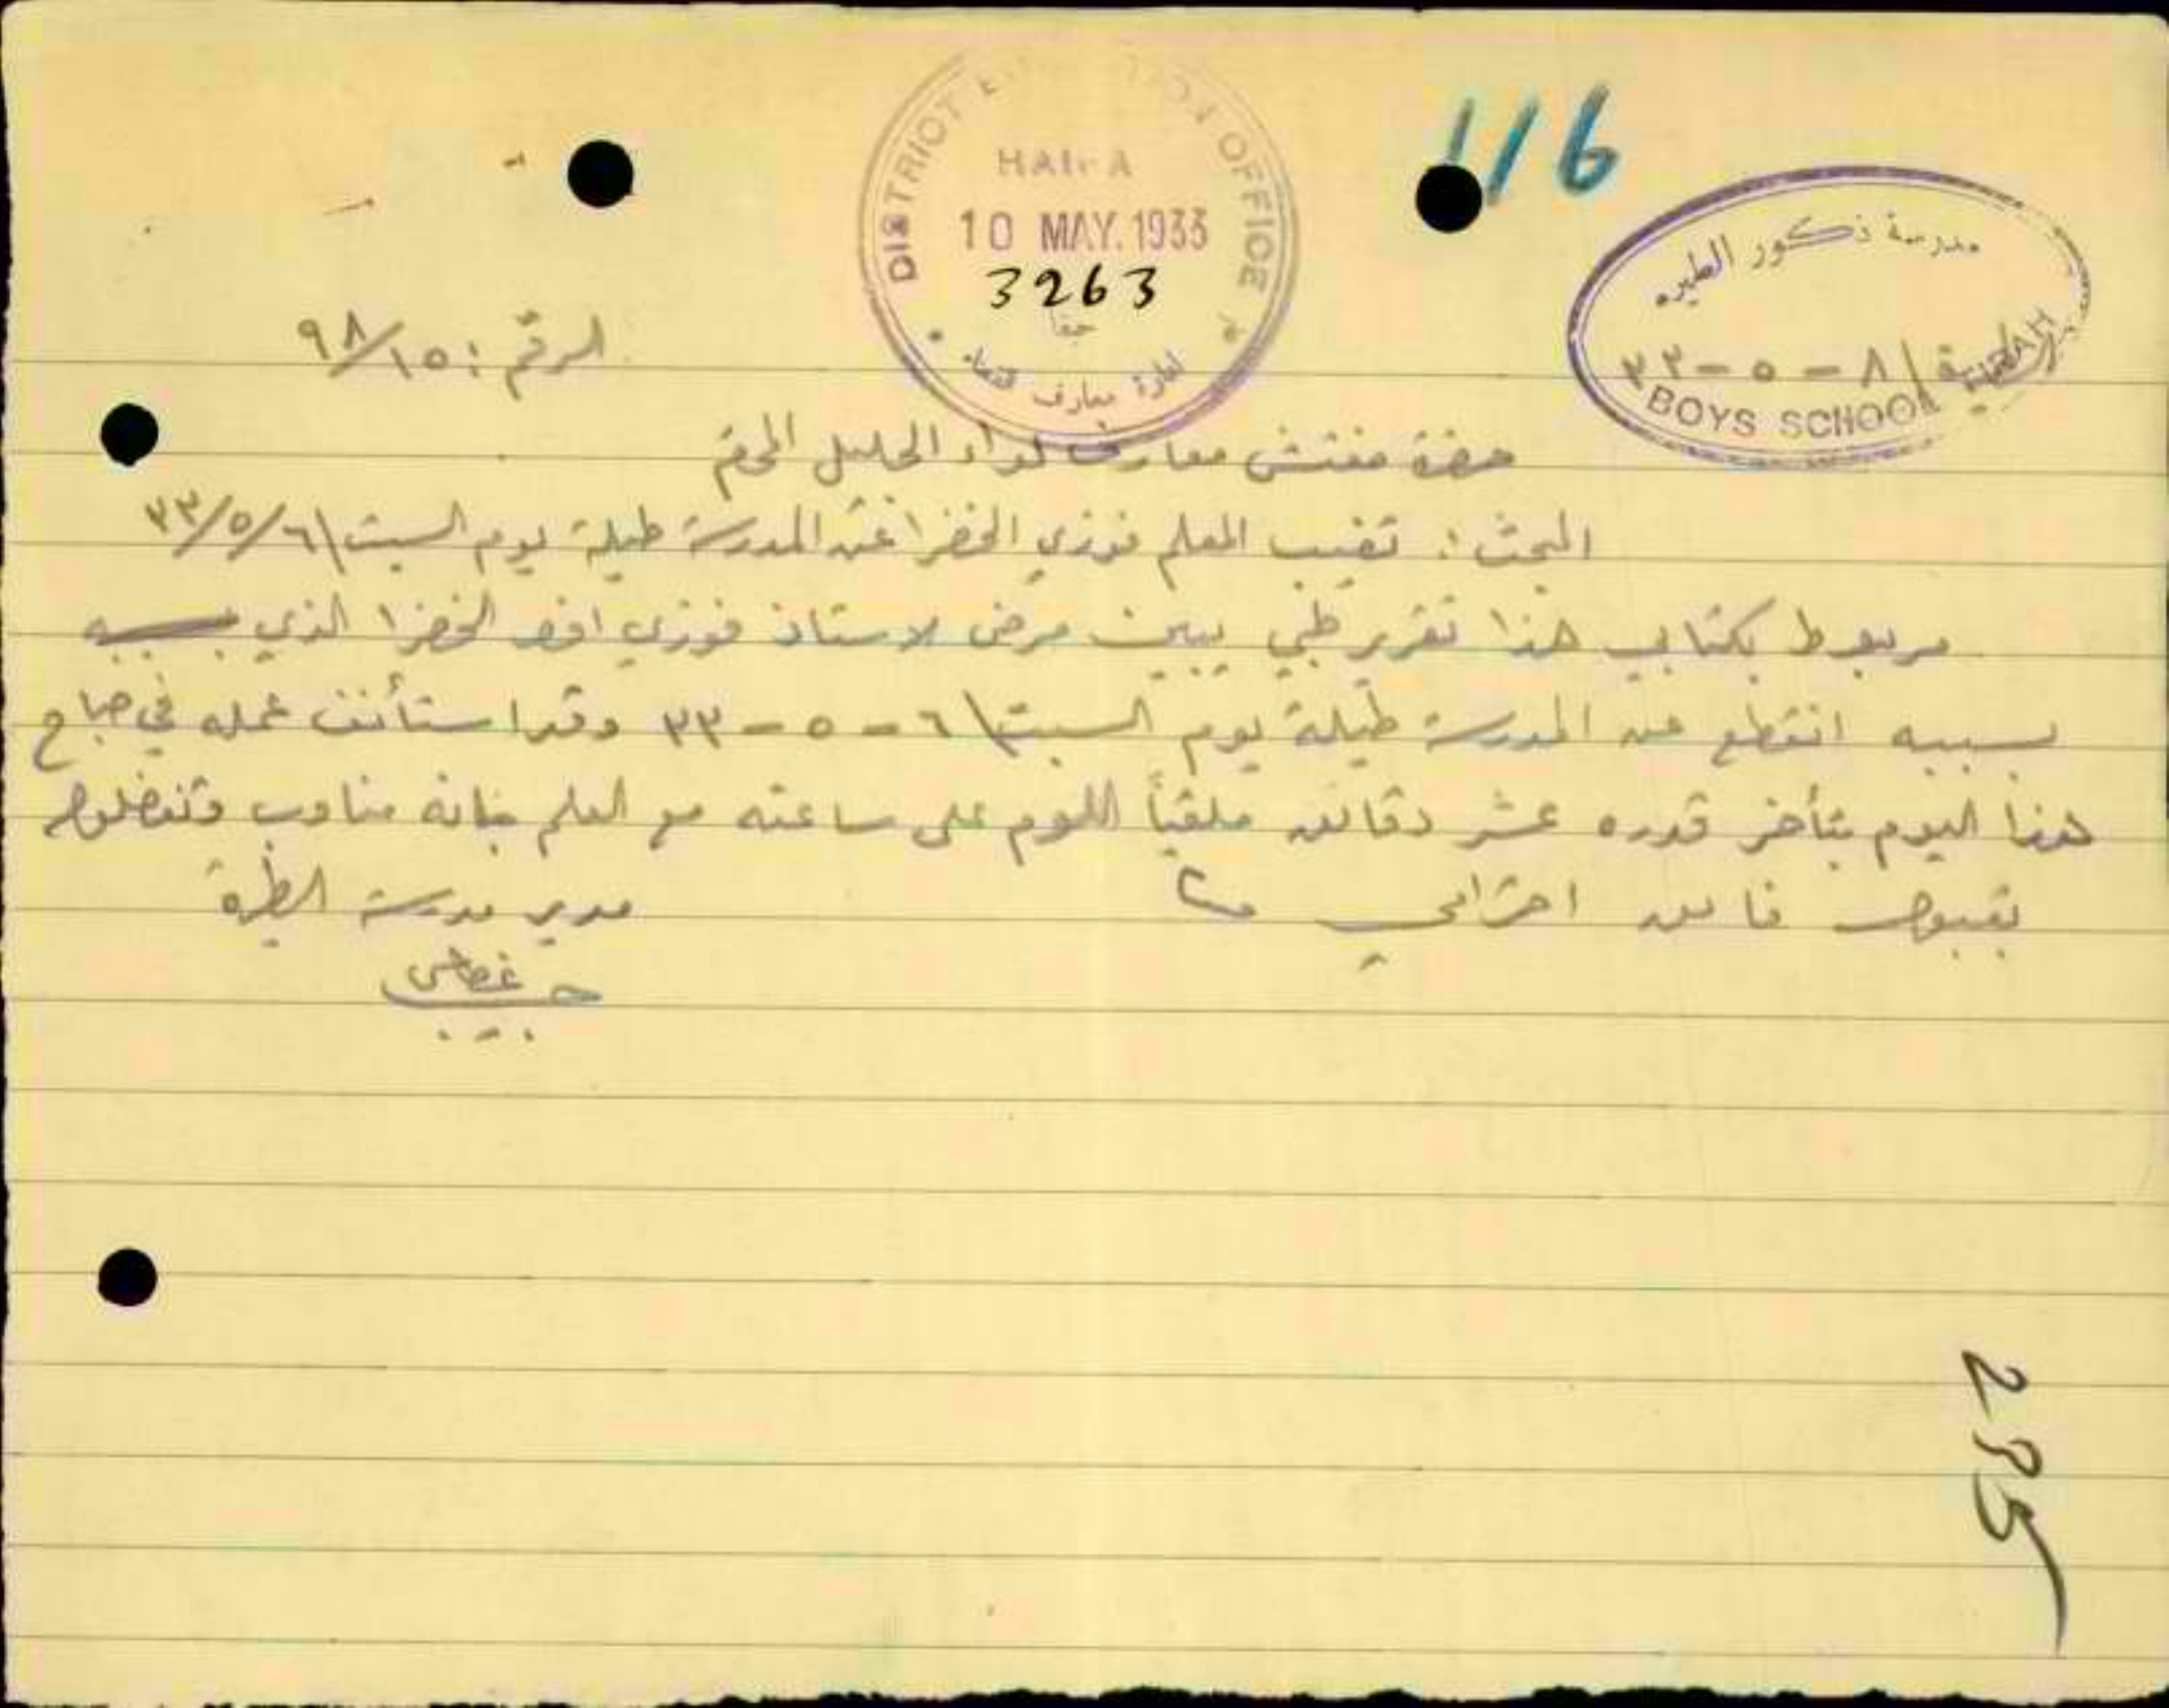 116
DISTRICT EDUCATION OFFICE
HAIFA
10 MAY. 1933
3263
حيفا
ادارة معارف القضاء
مدرسة ذكور الطيره
الطيرة ٨ - ٥ - ٣٣
BOYS SCHOOL TIRAH
الرقم : ٩٨/١٥
حضرة مفتش معارف لواء الجليل المحترم
البحث : تغيب المعلم فوزي الخضرا عن المدرسة طيلة يوم السبت ٦/٥/٣٣
مربوط بكتابي هذا تقرير طبي يبين مرض الاستاذ فوزي افندي الخضرا الذي بسببه
بسببه انقطع عن المدرسة طيلة يوم السبت ٦ - ٥ - ٣٣ وقد استأنف عمله في صباح
هذا اليوم بتأخر قدره عشر دقائق ملقياً اللوم على ساعته مع العلم بانه مناوب وتفضلوا
بقبول فائق احترامي
مدير مدرسة الطيرة
حبيب
285